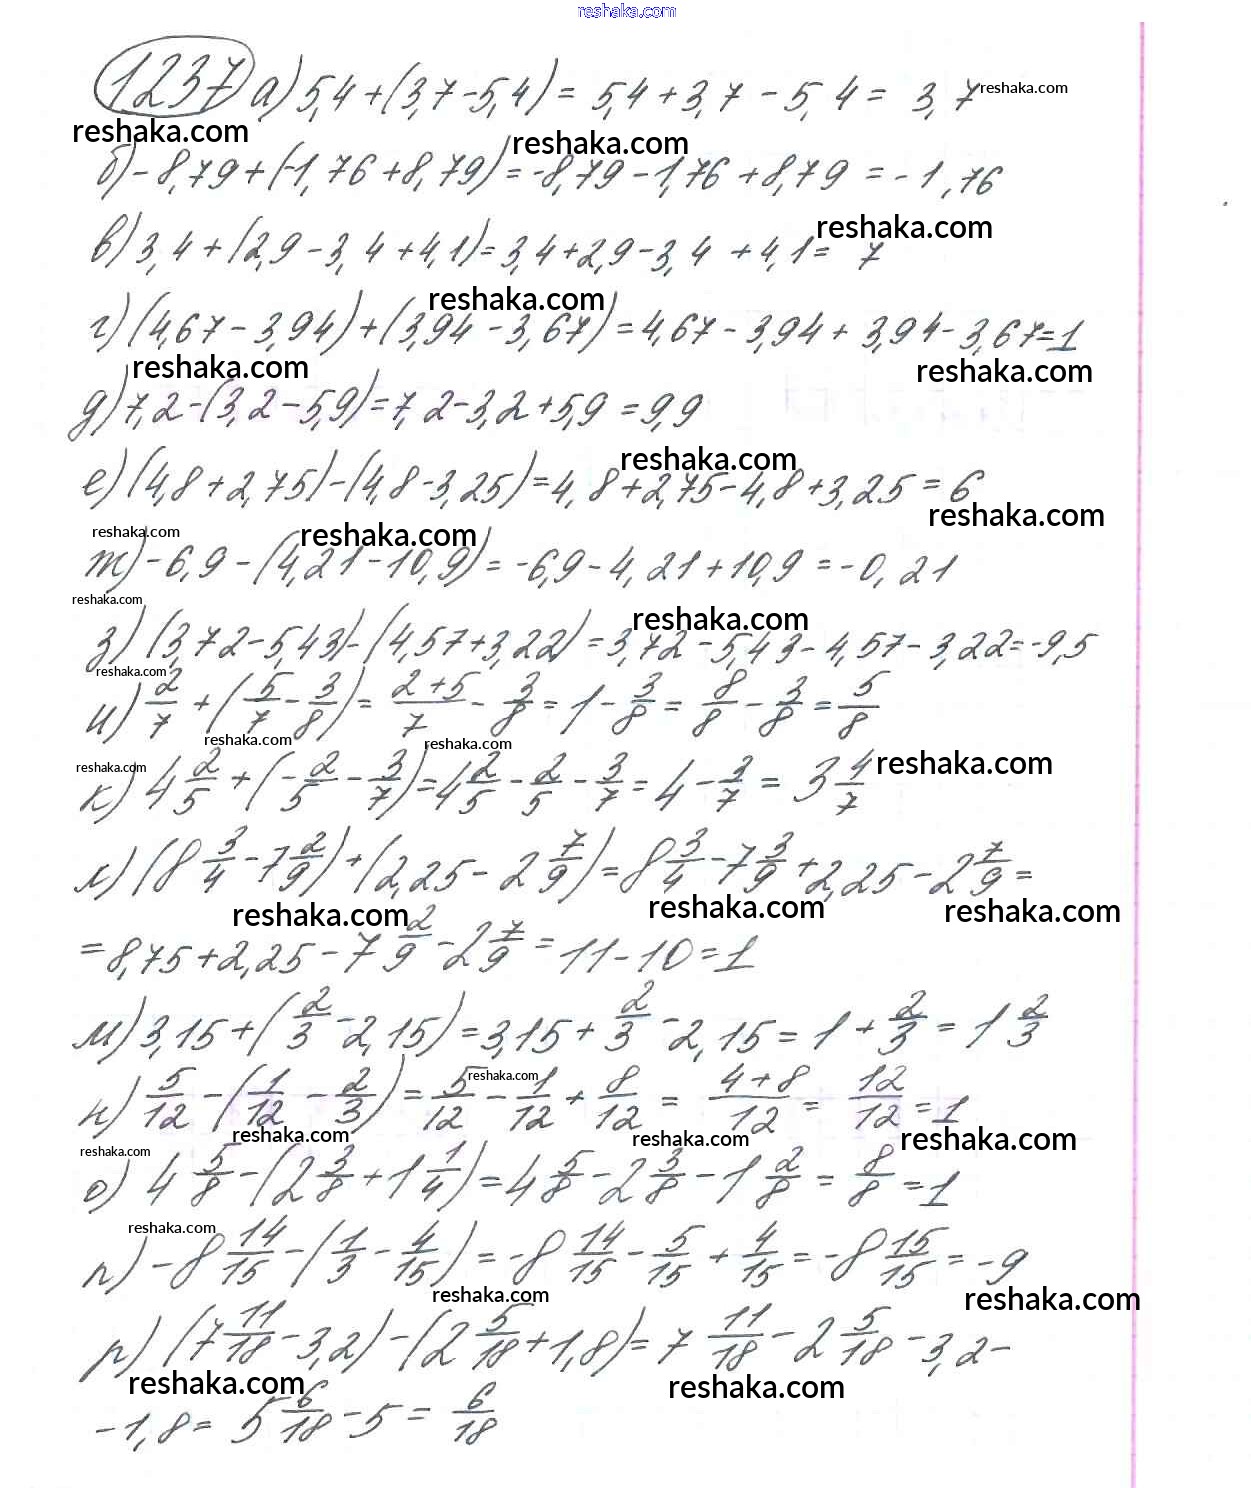 reshaka.com
1237 а) 5,4 + (3,7 - 5,4) = 5,4 + 3,7 - 5,4 = 3,7 reshaka.com
reshaka.com reshaka.com
б) - 8,79 + (-1,76 + 8,79) = -8,79 - 1,76 + 8,79 = - 1,76
reshaka.com
в) 3,4 + (2,9 - 3,4 + 4,1) = 3,4 + 2,9 - 3,4 + 4,1 = 7
reshaka.com
г) (4,67 - 3,94) + (3,94 - 3,67) = 4,67 - 3,94 + 3,94 - 3,67 = 1
reshaka.com reshaka.com
д) 7,2 - (3,2 - 5,9) = 7,2 - 3,2 + 5,9 = 9,9
reshaka.com
е) (4,8 + 2,75) - (4,8 - 3,25) = 4,8 + 2,75 - 4,8 + 3,25 = 6
reshaka.com
reshaka.com reshaka.com
ж) - 6,9 - (4,21 - 10,9) = -6,9 - 4,21 + 10,9 = -0,21
reshaka.com reshaka.com
з) (3,72 - 5,43) - (4,57 + 3,22) = 3,72 - 5,43 - 4,57 - 3,22 = -9,5
reshaka.com
и) 2/7 + (5/7 - 3/8) = (2+5)/7 - 3/8 = 1 - 3/8 = 8/8 - 3/8 = 5/8
reshaka.com reshaka.com
reshaka.com reshaka.com
к) 4 2/5 + (- 2/5 - 3/7) = 4 2/5 - 2/5 - 3/7 = 4 - 3/7 = 3 4/7
л) (8 3/4 - 7 2/9) + (2,25 - 2 7/9) = 8 3/4 - 7 3/9 + 2,25 - 2 7/9 =
reshaka.com reshaka.com reshaka.com
= 8,75 + 2,25 - 7 2/9 - 2 7/9 = 11 - 10 = 1
м) 3,15 + (2/3 - 2,15) = 3,15 + 2/3 - 2,15 = 1 + 2/3 = 1 2/3
reshaka.com
н) 5/12 - (1/12 - 2/3) = 5/12 - 1/12 + 8/12 = (4+8)/12 = 12/12 = 1
reshaka.com reshaka.com reshaka.com
reshaka.com
о) 4 5/8 - (2 3/8 + 1 1/4) = 4 5/8 - 2 3/8 - 1 2/8 = 8/8 = 1
reshaka.com
п) - 8 14/15 - (1/3 - 4/15) = -8 14/15 - 5/15 + 4/15 = -8 15/15 = -9
reshaka.com reshaka.com
р) (7 11/18 - 3,2) - (2 5/18 + 1,8) = 7 11/18 - 2 5/18 - 3,2 -
reshaka.com reshaka.com
- 1,8 = 5 6/18 - 5 = 6/18